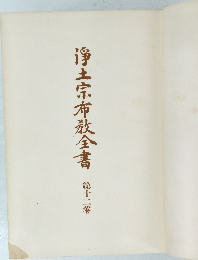 淨土宗布教全書
第十二卷